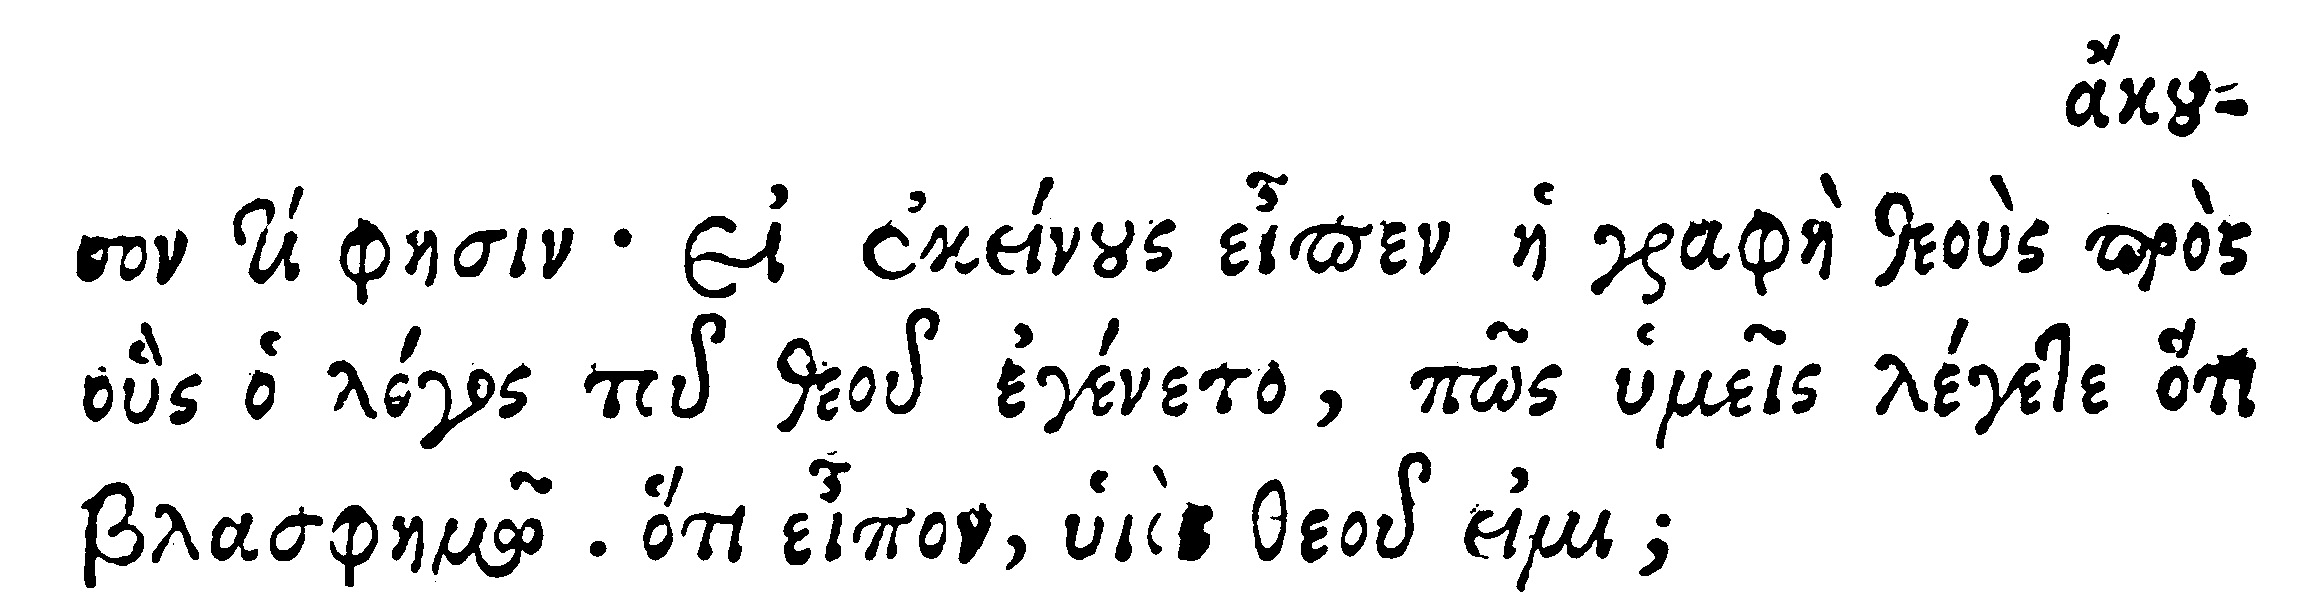 ἄκου-
σον τί φησιν · Εἰ ἐκείνους εἶπεν ἡ γραφὴ θεοὺς πρὸς
οὓς ὁ λόγος τοῦ θεοῦ ἐγένετο, πῶς ὑμεῖς λέγετε ὅτι
βλασφημῶ . ὅτι εἶπον, ὑιὸς θεοῦ εἰμι ;